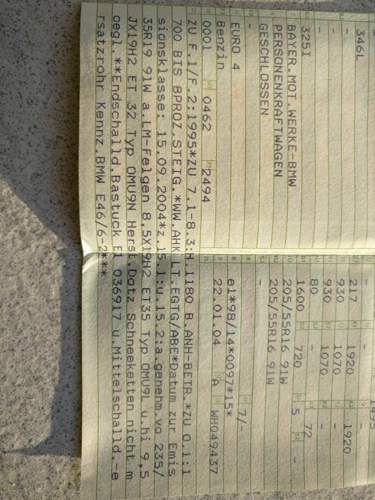 1495
346L - 217 1920 1920
- 930 1070 -
- 930 1070 -
3251 80 - 72
BAYER.MOT.WERKE-BMW 1600 720 5 -
PERSONENKRAFTWAGEN 205/55R16 91W
GESCHLOSSEN 205/55R16 91W
- -
7/-
EURO 4 e1*98/14*0097*15*
Benzin 22.01.04 A WH049437
0001 0462 2494
ZU F.1/F.2:1995*ZU 7.1-8.3:H.1180 B.ANH-BETR.*ZU O.1:1
700 BIS 8PROZ.STEIG.*WW.AHK LT.EGTG/ABE*Datum zur Emis
sionsklasse: 15.09.2004*z.15.1:u.15.2:a.genehm.vo 235/
35R19 91W a.LM-Felgen 8,5X19H2 ET35 Typ OMU9L u.hi 9,5
JX19H2 ET 32 Typ OMU9N Herst.Dotz Schneeketten nicht m
oegl.**Endschalld.Bastuck E1 036917 u.Mittelschalld.-e
rsatzrohr Kennz.BMW E46/6-2***